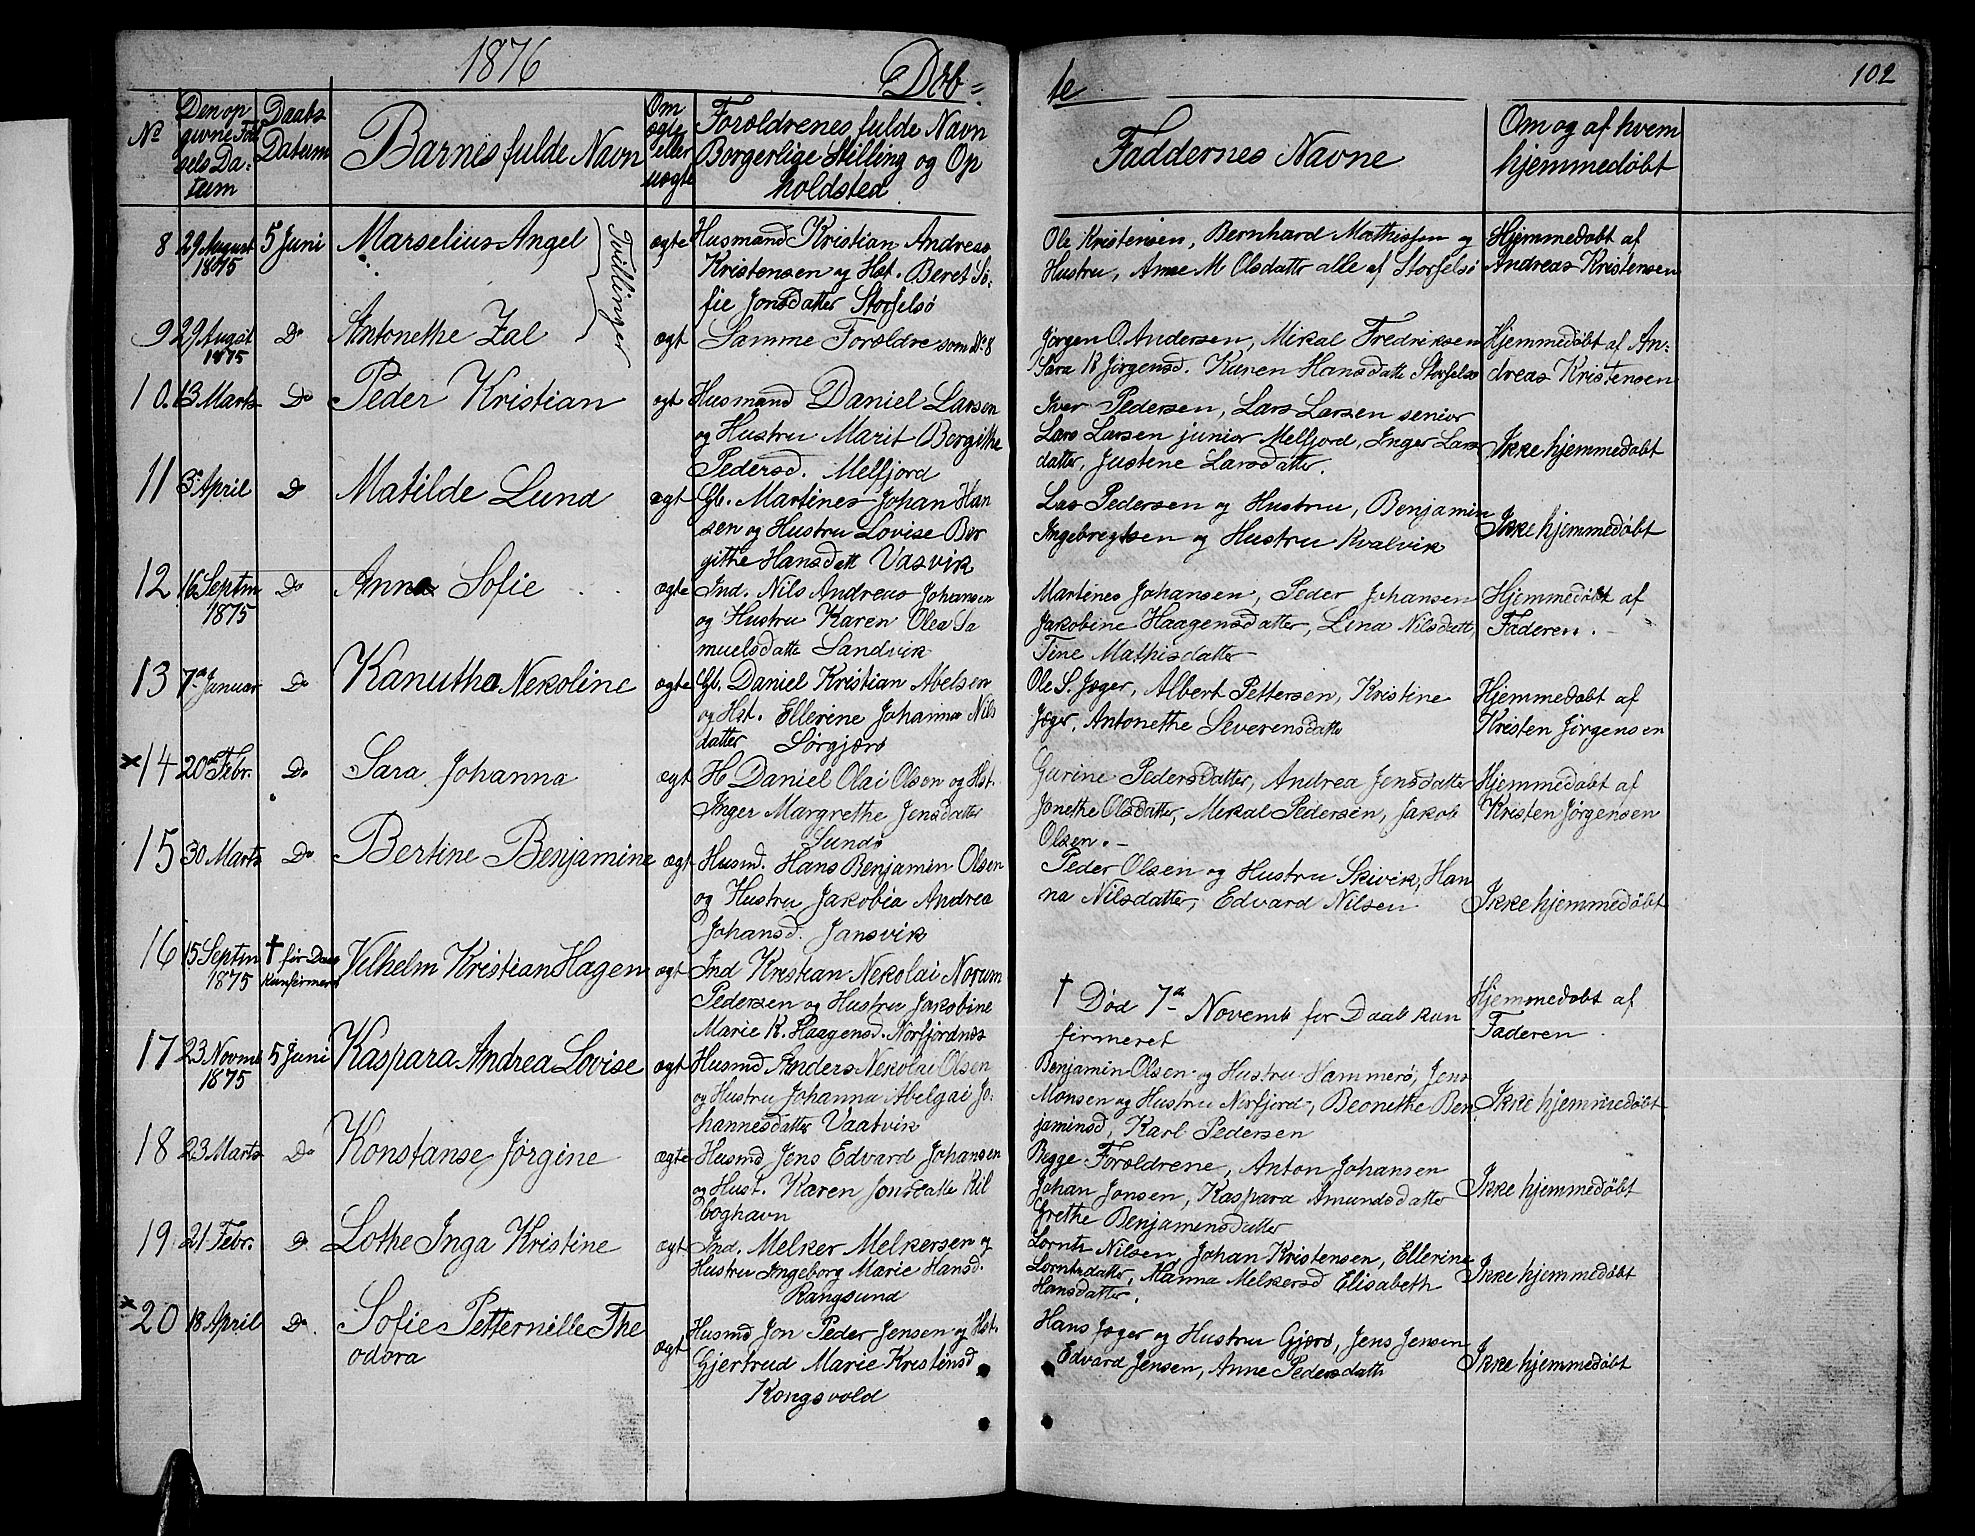 1876
Døb=
te
102
No
Den op
givne Fød
sels Da=
tum
Daabs
Datum
Barnes fulde Navn
Om
ægte
eller
uægte
Forældrenes fulde Navn
Borgerlige Stilling og Op
holdsted
Faddernes Navne
Om og af hvem
hjemmedøbt
8 29 August 5 Juni Marselius Angel ægte Husmand Kristian Andreas
1875
Kristensen og Hst. Beret So=
fie Jonsdatter Storselsø
Tvillinger
Ole Kristensen, Bernhard Mathissen og
Hustru, Anne M Olsdatter alle af Storselsø
Hjemmedøbt af
Andreas Kristensen
9 29 August Do Antonethe Zal ægt Samme Forældre som No 8
1875
Jørgen O. Andersen, Mikal Fredriksen
Sara R Jørgensd. Karen Hansdatte Storselsø
Hjemmedøbt af An=
dreas Kristensen
10. 13 Marts Do Peder Kristian ægt Husmand Daniel Larsen
og Hustru Marit Bergithe
Pedersd. Melfjord
Iver Pedersen, Lars Larsen senior
Lars Larsen junior Melfjord, Inger Lars
datter, Justene Larsdatter.
Ikke hjemmedøbt
11 3 April Do Matilde Lund ægt Gb. Martines Johan Han
sen og Hustru Lovise Ber
githe Hansdatt Vasvik
Las Pedersen og Hustru, Benjamin
Ingebregtsen og Hustru Kvalvik
Ikke hjemmedøbt
12 16 Septm Do Anna Sofie ægte Ind. Nils Andreas Johansen
1875
og Hustru Karen Olea Sa
muelsdatte Sandvik
Martines Johansen, Peder Johansen
Jakobine Haagensdatter, Lina Nilsdatt,
Tine Mathisdatter
Hjemmedøbt af
Faderen.
13 7de Januar Do Kanutha Nekoline ægte Gb. Daniel Kristian Abelsen
og Hst. Ellerine Johanna Nils
datter Sørgjærø
Ole S. Jæger, Albert Pettersen, Kristine
Jæger, Antonethe Severensdatte
Hjemmedøbt af
Kristen Jørgensen
x 14 20de Febr. Do Sara Johanna ægt H Daniel Olai Olsen og Hst.
Inger Margrethe Jensdatter
Sundø
Gurine Pedersdatter, Andrea Jensdatter
Jonethe Olsdatter, Mekal Pedersen, Jakob
Olsen.-
Hjemmedøbt af
Kristen Jørgensen
15 30 Marts Do Bertine Benjamine ægt Husmd. Hans Benjamin Olsen
og Hustru Jakobia Andrea
Johansd. Jansvik
Peder Olsen og Hustru Skivik, Han
na Nilsdatter, Edvard Nilsen
Ikke hjemmedøbt
16 15 Septm † før Daab Vilhelm Kristian Hagen ægt Ind Kristian Nekolai Norum
1875 kunfirmeret
Pedersen og Hustru Jakobine
Marie K. Haagensd. Norfjordnes
† Død 7de Novemb før Daab kun
firmeret
Hjemmedøbt af
Faderen.
17 23 Novmb 5 Juni Kaspara Andrea Lovise ægt Husmd Anders Nekolai Olsen
1875
og Hustru Johanna Abelgai Jo=
hannesdatter Vaatvik
Benjamin Olsen og Hustru Hammerø, Jens
Monsen og Hustru Norfjord, Beonethe Ben
jaminsd, Karl Pedersen
Ikke hjemmedøbt
18 23 Marts Do Konstanse Jørgine ægte Husmd Jens Edvard Johansen
og Hust. Karen Jonsdatte Kil
boghavn
Begge Forældrene, Anton Johansen
Johan Jonsen, Kaspara Amundsdatter
Grethe Benjamensdatter
Ikke hjemmedøbt
19. 21 Febr. Do Lothe Inga Kristine ægt. Ind. Melker Melkersen og
Hustru Ingeborg Marie Hansd.
Rangsund
Lornts Nilsen, Johan Kristensen, Ellerine
Lorntsdatter, Hanna Melkersd Elisabeth
Hansdatter.
Ikke hjemmedøbt
x 20 18 April Do. Sofie Petternille The ægt Husmd Jon Peder Jensen og Hst.
odora
Gjertrud Marie Kristensd
Kongsvold
Hans Jæger og Hustru Gjærø, Jens Jensen
Edvard Jensen, Anne Pedersdatte
Ikke hjemmedøbt